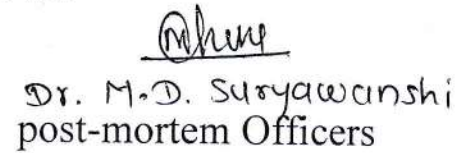 Dr. M.D. Suryawanshi
post-mortem Officers